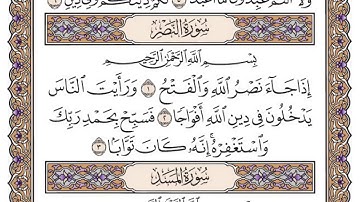 وَلَآ أَنتُمْ عَٰبِدُونَ مَآ أَعْبُدُ ۝٥ لَكُمْ دِينُكُمْ وَلِيَ دِينِ ۝٦
سُورَةُ النَّصْرِ
بِسْمِ ٱللَّهِ ٱلرَّحْمَٰنِ ٱلرَّحِيمِ
إِذَا جَآءَ نَصْرُ ٱللَّهِ وَٱلْفَتْحُ ۝١ وَرَأَيْتَ ٱلنَّاسَ
يَدْخُلُونَ فِي دِينِ ٱللَّهِ أَفْوَاجًا ۝٢ فَسَبِّحْ بِحَمْدِ رَبِّكَ
وَٱسْتَغْفِرْهُ إِنَّهُۥ كَانَ تَوَّابًۢا ۝٣
سُورَةُ المَسَدِ